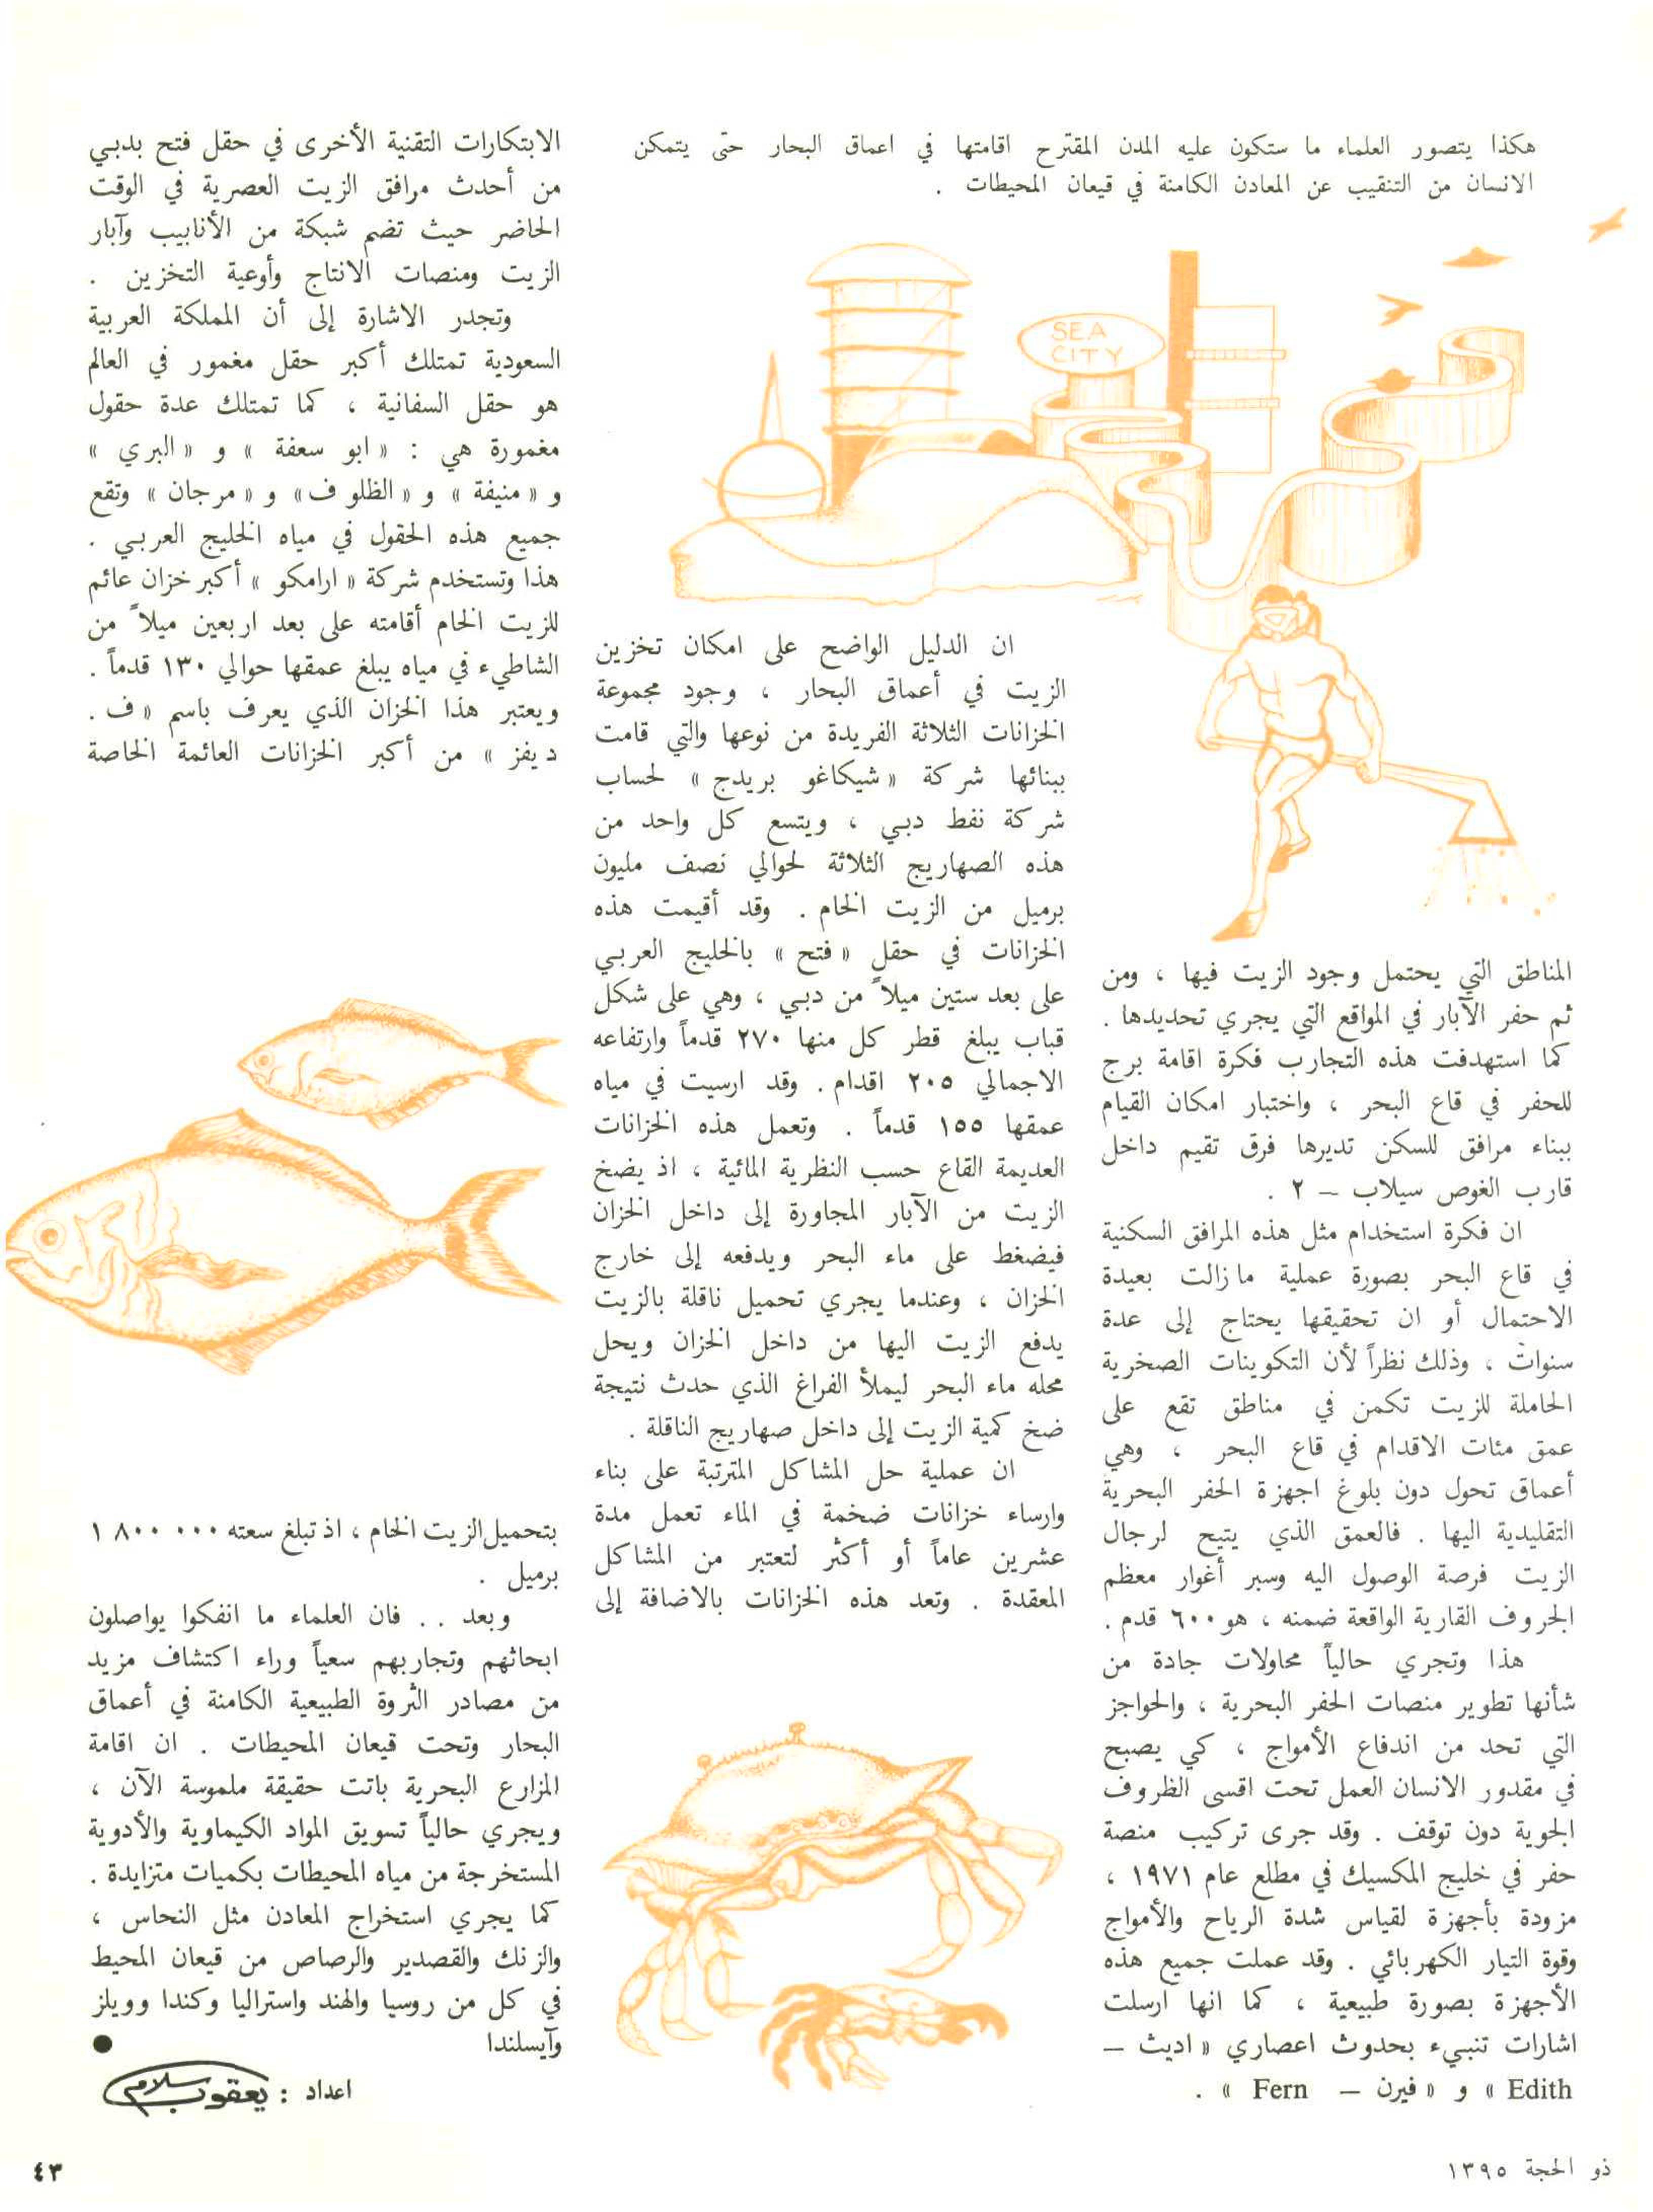 هكذا يتصور العلماء ما ستكون عليه المدن المقترح اقامتها في اعماق البحار حتى يتمكن
الانسان من التنقيب عن المعادن الكامنة في قيعان المحيطات .
SEA
CITY
المناطق التي يحتمل وجود الزيت فيها ، ومن
ثم حفر الآبار في المواقع التي يجري تحديدها .
كما استهدفت هذه التجارب فكرة اقامة برج
للحفر في قاع البحر ، واختبار امكان القيام
ببناء مرافق للسكن تديرها فرق تقيم داخل
قارب الغوص سيلاب – ٢ .
ان فكرة استخدام مثل هذه المرافق السكنية
في قاع البحر بصورة عملية مازالت بعيدة
الاحتمال أو ان تحقيقها يحتاج إلى عدة
سنوات ، وذلك نظراً لأن التكوينات الصخرية
الحاملة للزيت تكمن في مناطق تقع على
عمق مئات الاقدام في قاع البحر ، وهي
أعماق تحول دون بلوغ اجهزة الحفر البحرية
التقليدية اليها . فالعمق الذي يتيح لرجال
الزيت فرصة الوصول اليه وسبر أغوار معظم
الجروف القارية الواقعة ضمنه ، هو ٦٠٠ قدم .
هذا وتجري حالياً محاولات جادة من
شأنها تطوير منصات الحفر البحرية ، والحواجز
التي تحد من اندفاع الأمواج ، كي يصبح
في مقدور الانسان العمل تحت اقسى الظروف
الجوية دون توقف . وقد جرى تركيب منصة
حفر في خليج المكسيك في مطلع عام ١٩٧١ ،
مزودة بأجهزة لقياس شدة الرياح والأمواج
وقوة التيار الكهربائي . وقد عملت جميع هذه
الأجهزة بصورة طبيعية ، كما انها ارسلت
اشارات تنبيء بحدوث اعصاري « اديث –
Edith » و « فيرن – Fern » .
ان الدليل الواضح على امكان تخزين
الزيت في أعماق البحار ، وجود مجموعة
الخزانات الثلاثة الفريدة من نوعها والتي قامت
ببنائها شركة « شيكاغو بريدج » لحساب
شركة نفط دبي ، ويتسع كل واحد من
هذه الصهاريج الثلاثة لحوالي نصف مليون
برميل من الزيت الخام . وقد أقيمت هذه
الخزانات في حقل « فتح » بالخليج العربي
على بعد ستين ميلاً من دبي ، وهي على شكل
قباب يبلغ قطر كل منها ٢٧٠ قدماً وارتفاعه
الاجمالي ٢٠٥ اقدام . وقد ارسيت في مياه
عمقها ١٥٥ قدماً . وتعمل هذه الخزانات
العديمة القاع حسب النظرية المائية ، اذ يضخ
الزيت من الآبار المجاورة إلى داخل الخزان
فيضغط على ماء البحر ويدفعه إلى خارج
الخزان ، وعندما يجري تحميل ناقلة بالزيت
يدفع الزيت اليها من داخل الخزان ويحل
محله ماء البحر ليملأ الفراغ الذي حدث نتيجة
ضخ كمية الزيت إلى داخل صهاريج الناقلة .
ان عملية حل المشاكل المترتبة على بناء
وارساء خزانات ضخمة في الماء تعمل مدة
عشرين عاماً أو أكثر لتعتبر من المشاكل
المعقدة . وتعد هذه الخزانات بالاضافة إلى
الابتكارات التقنية الأخرى في حقل فتح بدبي
من أحدث مرافق الزيت العصرية في الوقت
الحاضر حيث تضم شبكة من الأنابيب وآبار
الزيت ومنصات الانتاج وأوعية التخزين .
وتجدر الاشارة إلى أن المملكة العربية
السعودية تمتلك أكبر حقل مغمور في العالم
هو حقل السفانية ، كما تمتلك عدة حقول
مغمورة هي : « ابو سعفة » و « البري »
و « منيفة » و « الظلوف» و « مرجان » وتقع
جميع هذه الحقول في مياه الخليج العربي .
هذا وتستخدم شركة « ارامكو » أكبر خزان عائم
للزيت الخام أقامته على بعد اربعين ميلاً من
الشاطيء في مياه يبلغ عمقها حوالي ١٣٠ قدماً .
ويعتبر هذا الخزان الذي يعرف باسم « ف .
ديفز » من أكبر الخزانات العائمة الخاصة
بتحميل الزيت الخام ، اذ تبلغ سعته ٠٠٠ ٨٠٠ ١
برميل .
وبعد . . فان العلماء ما انفكوا يواصلون
ابحاثهم وتجاربهم سعياً وراء اكتشاف مزيد
من مصادر الثروة الطبيعية الكامنة في أعماق
البحار وتحت قيعان المحيطات . ان اقامة
المزارع البحرية باتت حقيقة ملموسة الآن ،
ويجري حالياً تسويق المواد الكيماوية والأدوية
المستخرجة من مياه المحيطات بكميات متزايدة .
كما يجري استخراج المعادن مثل النحاس ،
والزنك والقصدير والرصاص من قيعان المحيط
في كل من روسيا والهند واستراليا وكندا وويلز
وآيسلندا ●
اعداد : يعقوب سلام
ذو الحجة ١٣٩٥
٤٣